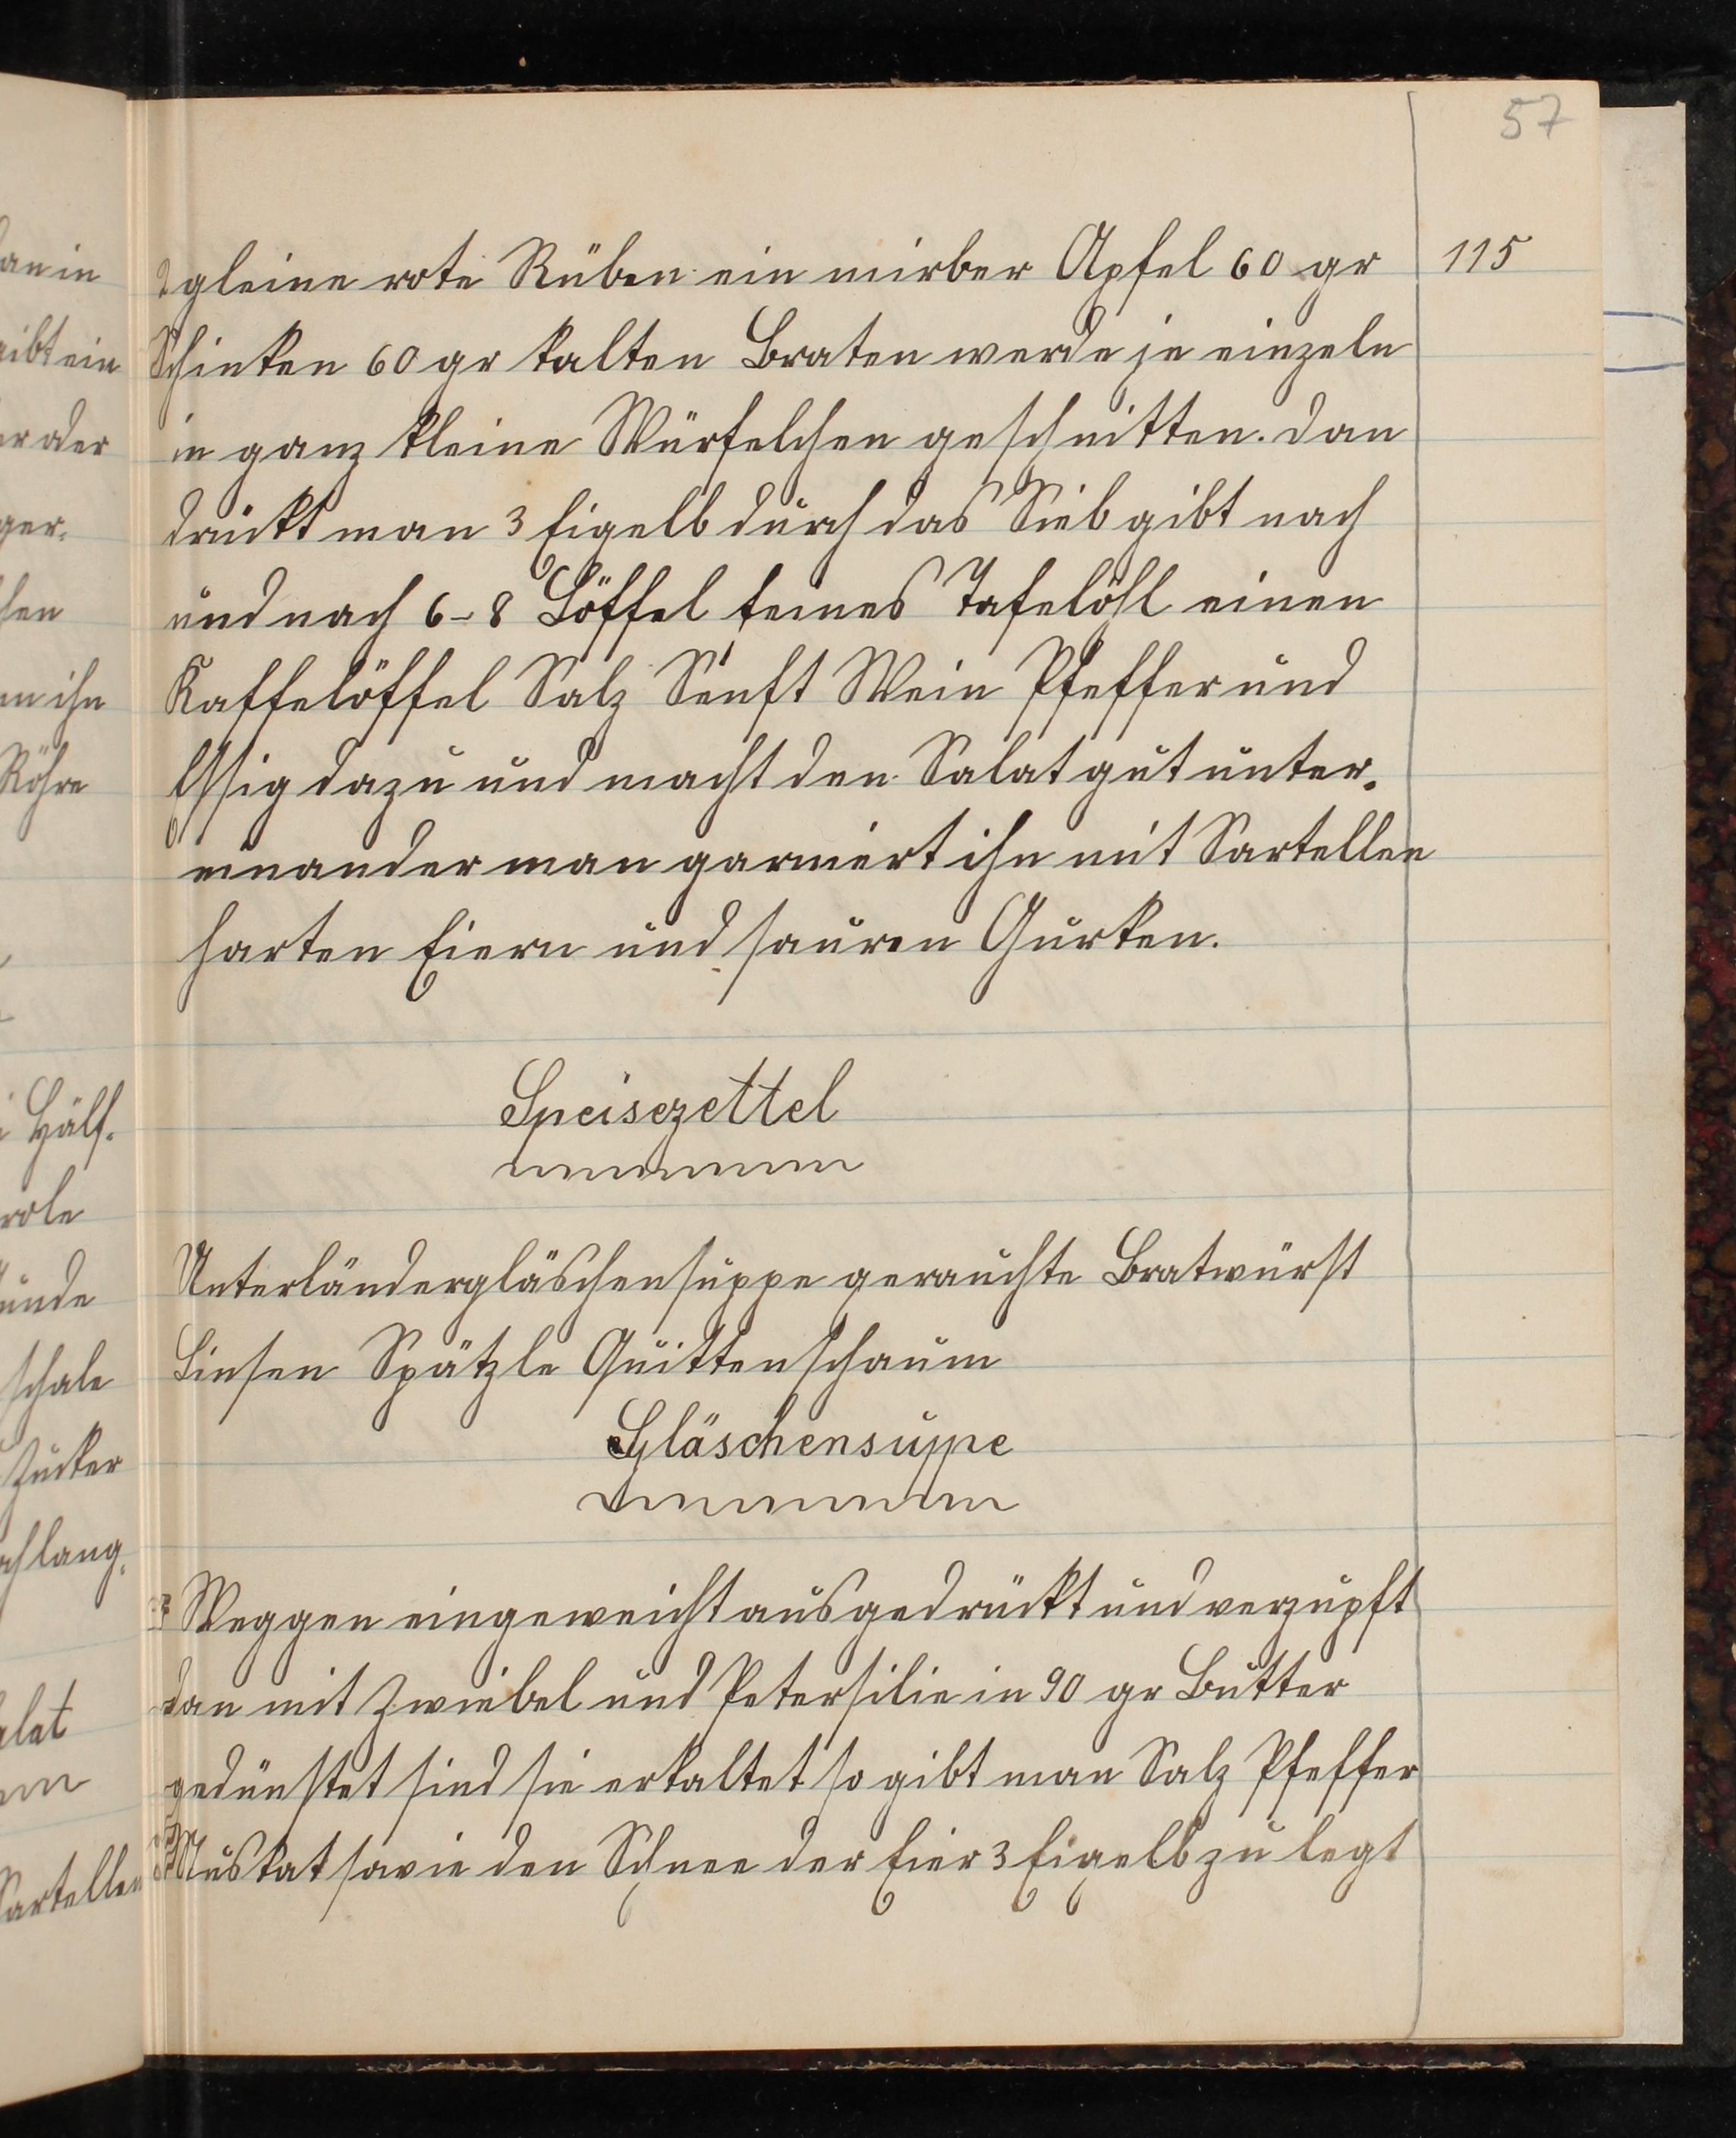 57
115
2 gleine rote Rüben ein mirber Apfel 60 gr
Schinken 60 gr kalten Braten werde je einzeln
in ganz kleine Würfelchen geschnitten. dan
drückt man 3 Eigelb durch das Sieb gibt nach
und nach 6-8 Löffel feines Tafelöhl einen
Kaffelöffel Salz Senft Wein Pfeffer und
Essig dazu und macht den Salat gut unter-
einander man garniert ihn mit Sartellen
harten Eiern und sauren Gurken.
Speisezettel
Unterländergläschensuppe gerauchte Bratwürst
Linsen Spätzle Quittenschaum
Gläschensuppe
Weggen eingeweicht ausgedrückt und verzupft
dan mit Zwiebel und Petersilie in 90 gr Butter
gedünstet sind sie erkaltet so gibt man Salz Pfeffer
Muskat sowie den Schnee der Eier 3 Eigelb zu legt